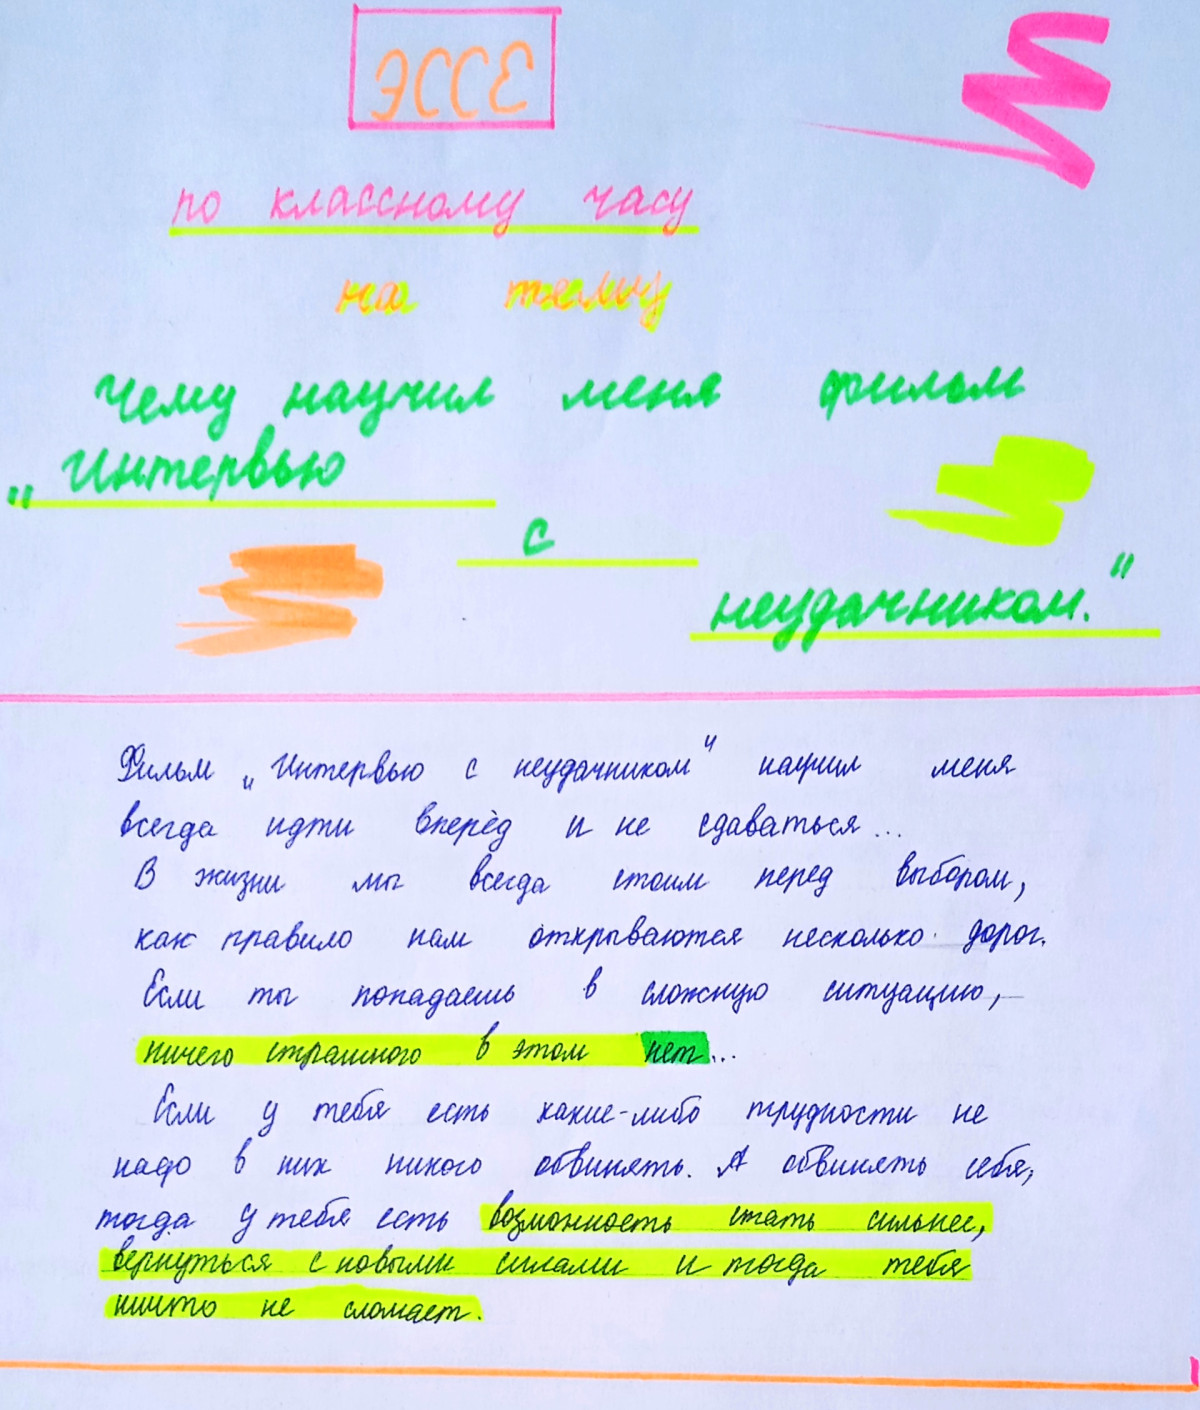 ЭССЕ
по классному часу
на тему
Чему научил меня фильм
„Интервью
с
неудачником."
Фильм „Интервью с неудачником" научил меня
всегда идти вперёд и не сдаваться...
В жизни мы всегда стоим перед выбором,
как правило нам открываются несколько дорог.
Если ты попадаешь в сложную ситуацию,
ничего страшного в этом нет...
Если у тебя есть какие-либо трудности не
надо в них никого обвинять. А обвинять себя,
тогда у тебя есть возможность стать сильнее,
вернуться с новыми силами и тогда тебя
ничто не сломает.